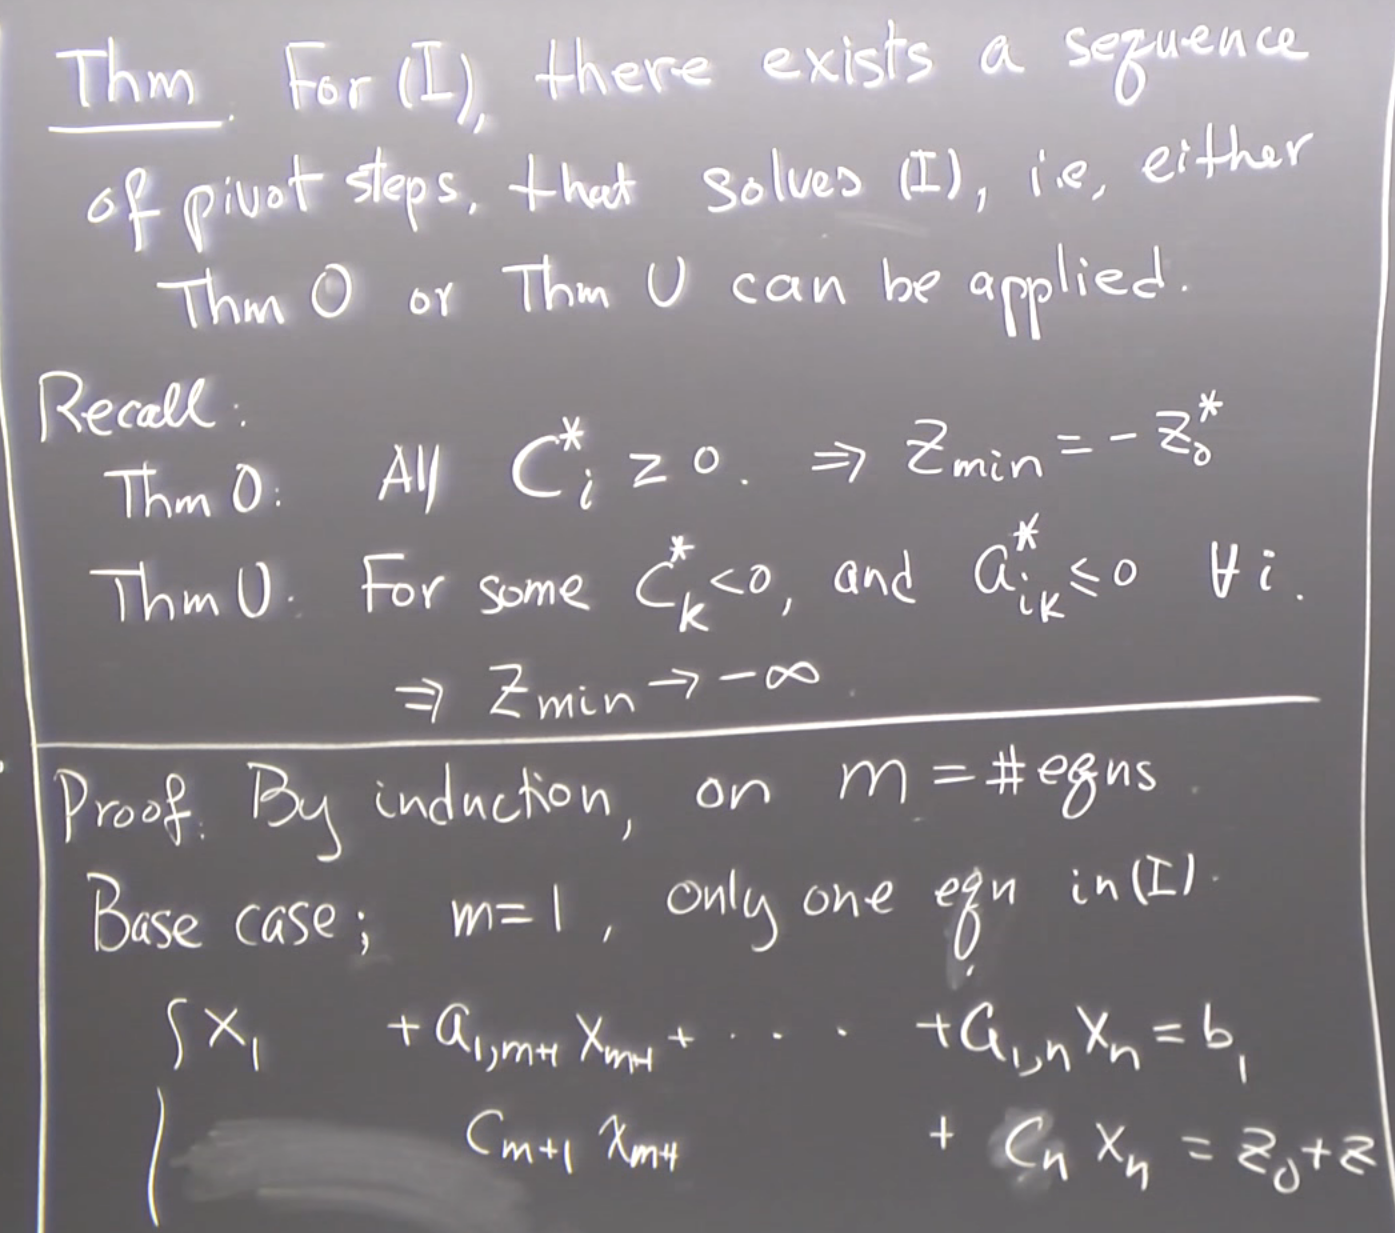 Thm. For (I), there exists a sequence
of pivot steps, that solves (I), i.e, either
Thm O or Thm U can be applied.
Recall:
Thm O: All C*_i ≥ 0. ⇒ Z_min = -Z*_0
Thm U. For some C*_k < 0, and a*_ik ≤ 0 ∀ i.
⇒ Z_min → -∞.
Proof. By induction, on m = # eqns.
Base case; m=1, only one eqn in (I).
{ x_1 + a_1,m+1 x_m+1 + · · · + a_1,n x_n = b_1
C_m+1 x_m+1 + C_n x_n = z_0 + z